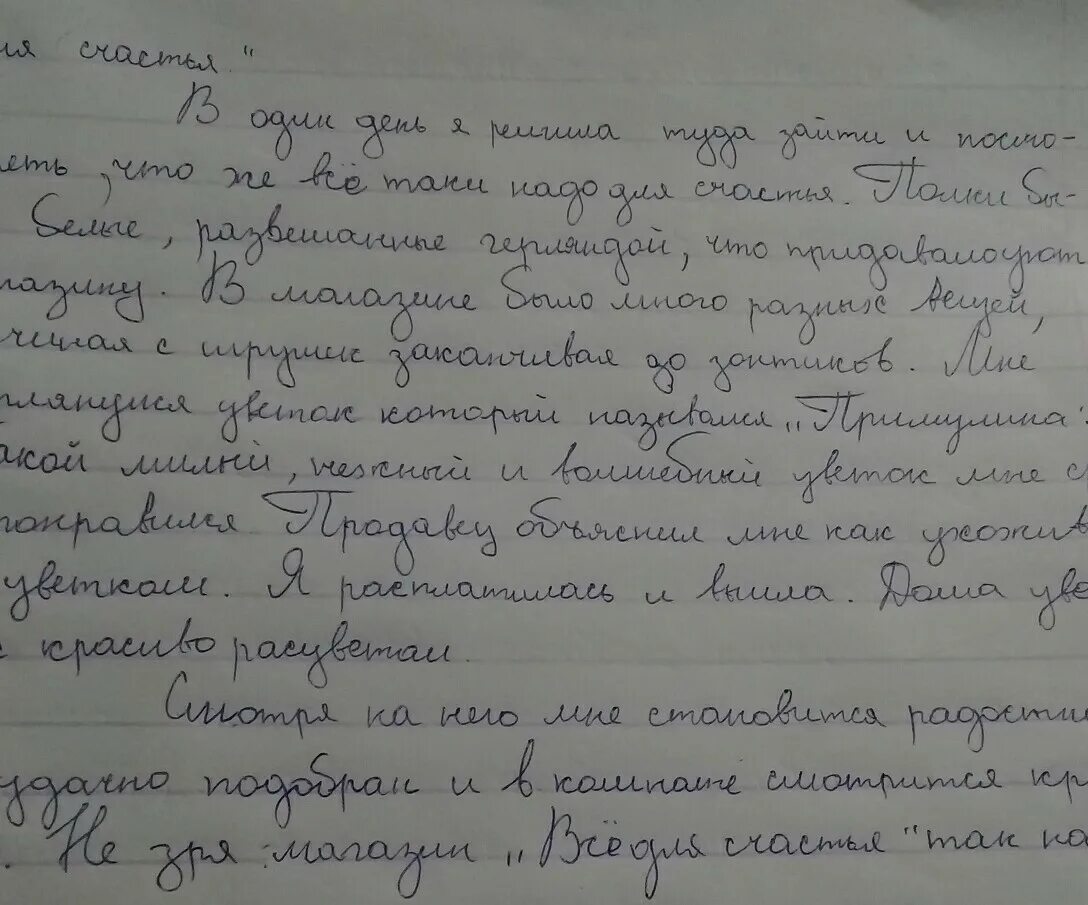 ля счастья."
В один день я решила туда зайти и посмо-
еть, что же всё таки надо для счастья. Полки бы-
белые, развешанные герляндой, что придавало уют
газину. В магазине было много разных вещей,
чиная с игрушек заканчивая до зонтиков. Мне
глянулся цветок который назывался „Примулина".
акой милый, нежный и волшебный цветок мне с
понравился. Продавец объяснил мне как ухажив
цветком. Я расплатилась и вышла. Дома цве
с красиво расцветал.
Смотря на него мне становится радостно
удачно подобран и в комнате смотрится кр
. Не зря магазин „Всё для счастья" так на